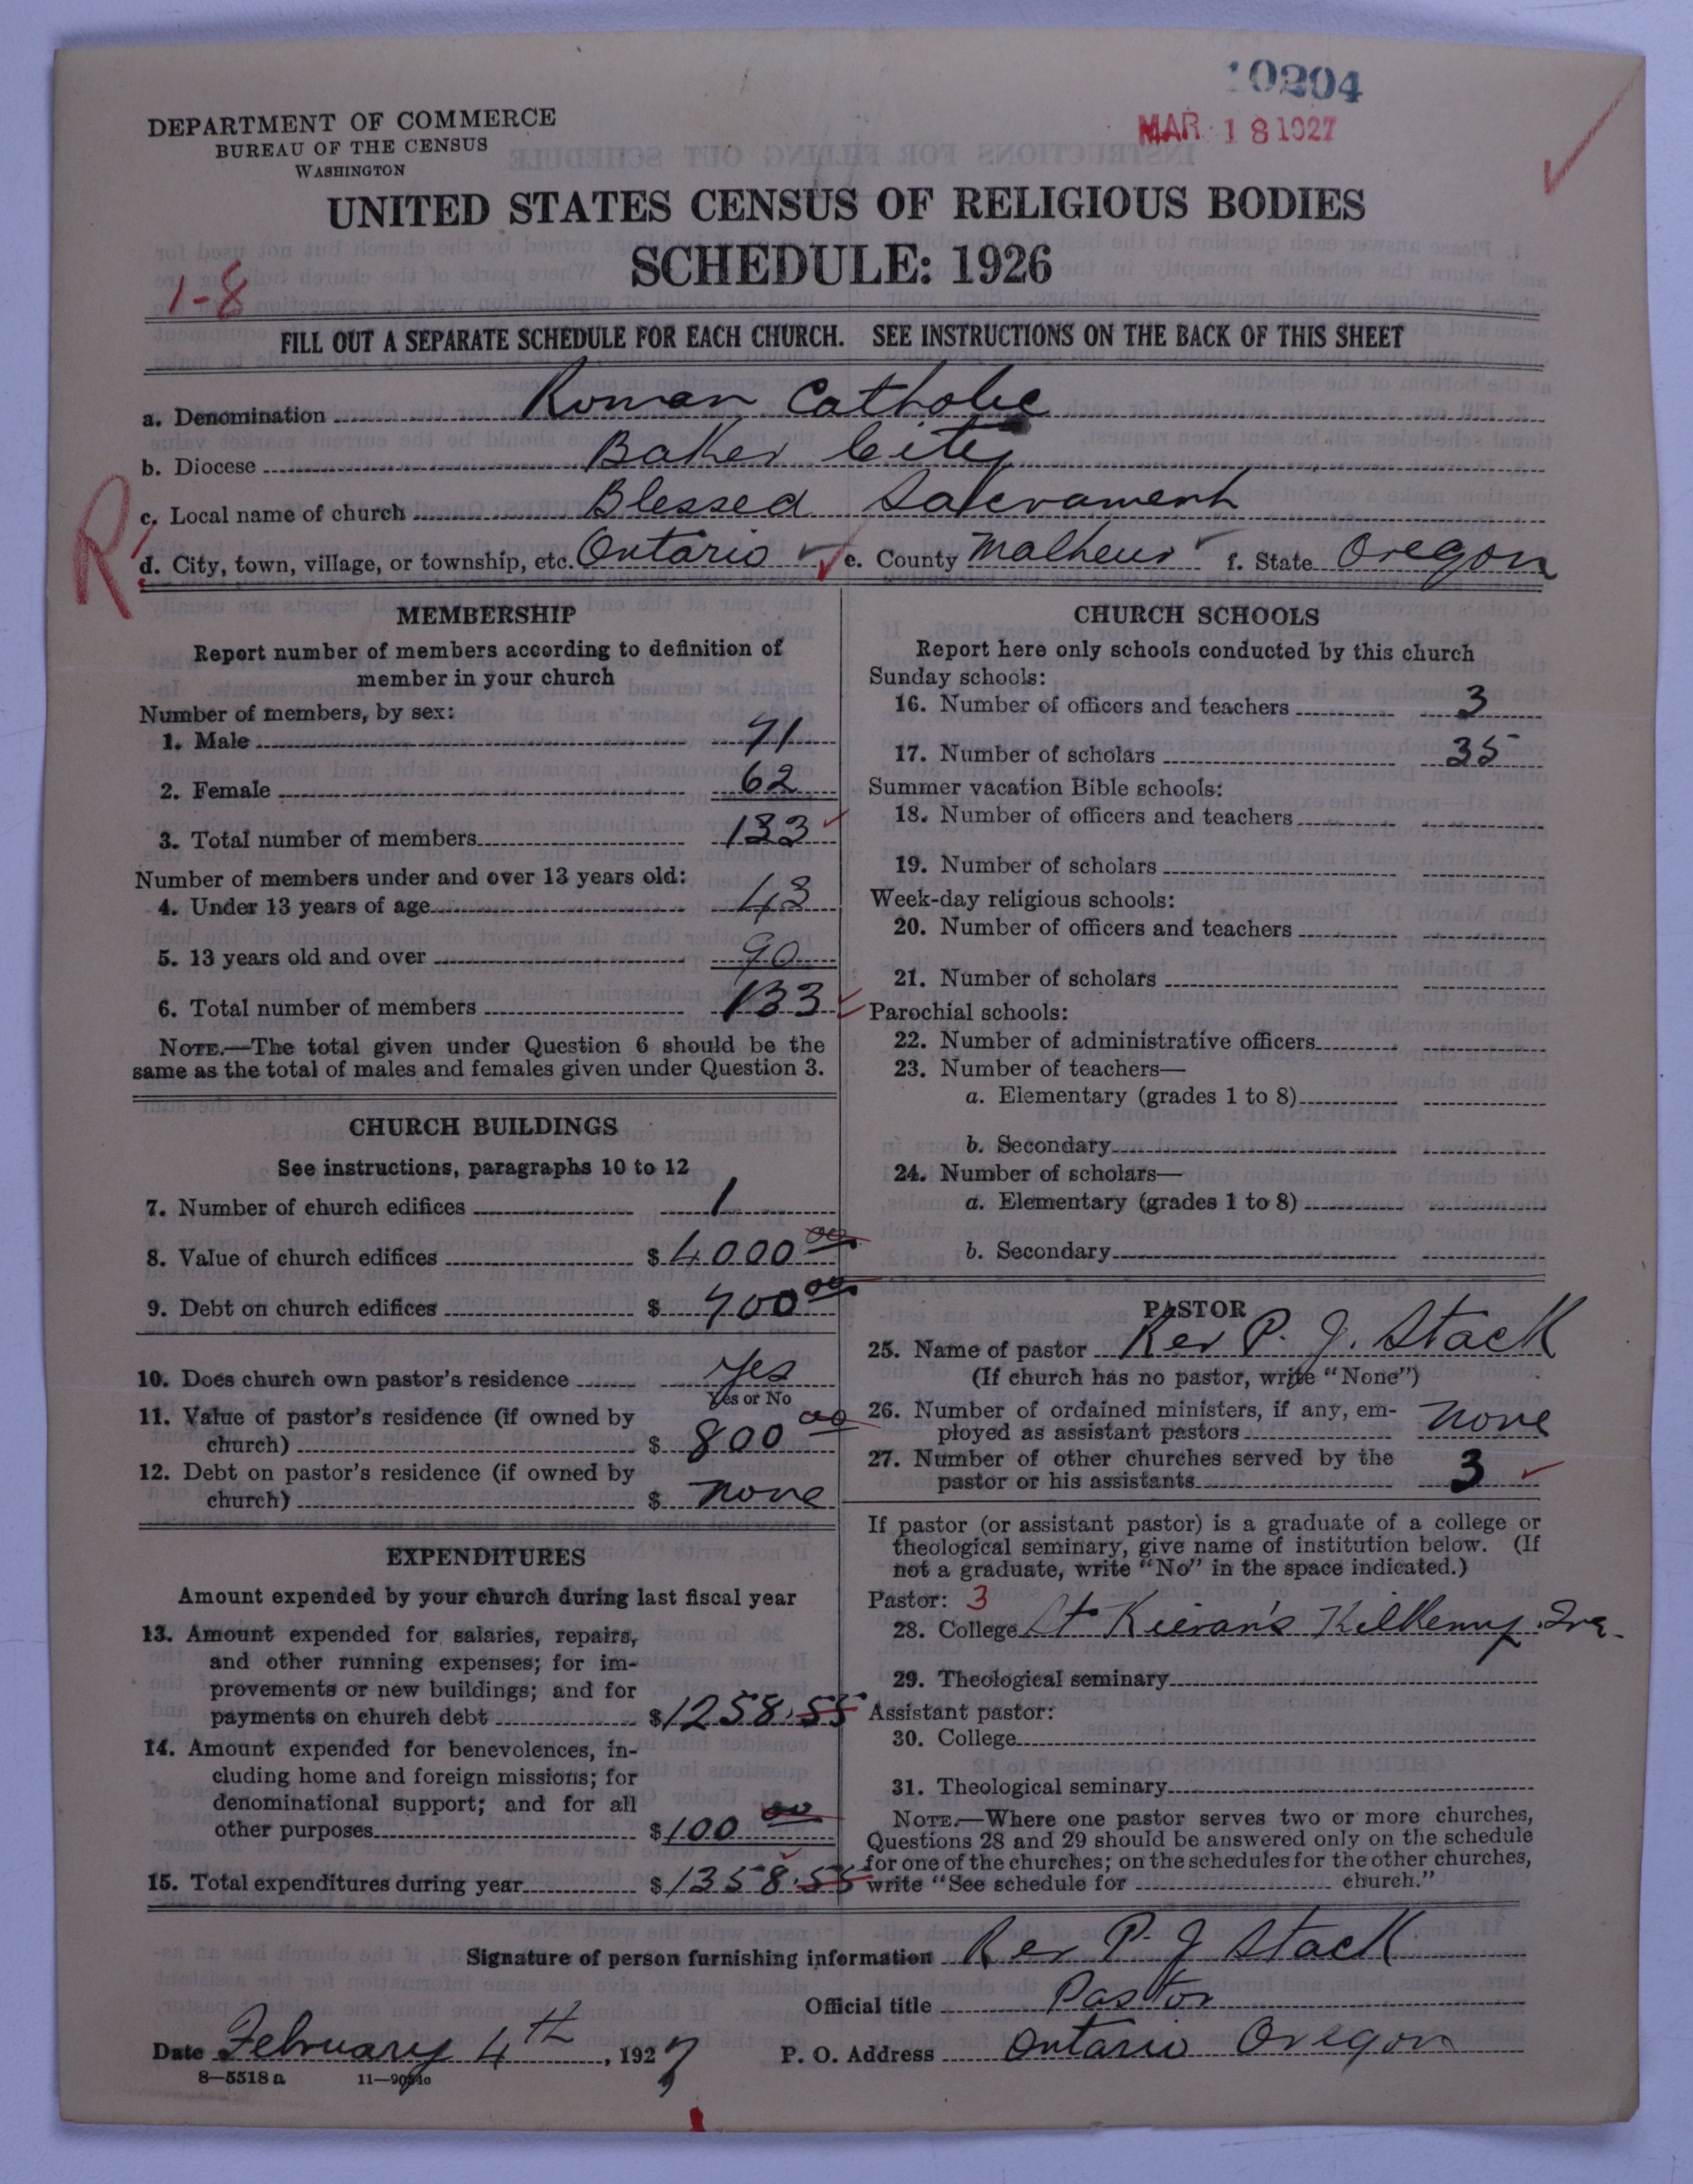 10204
MAR 18 1927
DEPARTMENT OF COMMERCE
BUREAU OF THE CENSUS
WASHINGTON
UNITED STATES CENSUS OF RELIGIOUS BODIES
SCHEDULE: 1926
1-8
FILL OUT A SEPARATE SCHEDULE FOR EACH CHURCH. SEE INSTRUCTIONS ON THE BACK OF THIS SHEET
a. Denomination Roman Catholic
b. Diocese Baker City
R
c. Local name of church Blessed Sacrament
d. City, town, village, or township, etc. Ontario e. County Malheur f. State Oregon
MEMBERSHIP
Report number of members according to definition of
member in your church
Number of members, by sex:
1. Male 71
2. Female 62
3. Total number of members 133
Number of members under and over 13 years old:
4. Under 13 years of age 43
5. 13 years old and over 90
6. Total number of members 133
NOTE.—The total given under Question 6 should be the
same as the total of males and females given under Question 3.
CHURCH BUILDINGS
See instructions, paragraphs 10 to 12
7. Number of church edifices 1
8. Value of church edifices $ 4000 00
9. Debt on church edifices $ 700 00
10. Does church own pastor's residence yes
Yes or No
11. Value of pastor's residence (if owned by
church) $ 800 00
12. Debt on pastor's residence (if owned by
church) $ none
EXPENDITURES
Amount expended by your church during last fiscal year
13. Amount expended for salaries, repairs,
and other running expenses; for im-
provements or new buildings; and for
payments on church debt $ 1258.55
14. Amount expended for benevolences, in-
cluding home and foreign missions; for
denominational support; and for all
other purposes $ 100 00
15. Total expenditures during year $ 1358.55
CHURCH SCHOOLS
Report here only schools conducted by this church
Sunday schools:
16. Number of officers and teachers 3
17. Number of scholars 35
Summer vacation Bible schools:
18. Number of officers and teachers
19. Number of scholars
Week-day religious schools:
20. Number of officers and teachers
21. Number of scholars
Parochial schools:
22. Number of administrative officers
23. Number of teachers—
a. Elementary (grades 1 to 8)
b. Secondary
24. Number of scholars—
a. Elementary (grades 1 to 8)
b. Secondary
PASTOR
25. Name of pastor Rev P. J. Stack
(If church has no pastor, write "None")
26. Number of ordained ministers, if any, em-
ployed as assistant pastors none
27. Number of other churches served by the
pastor or his assistants 3
If pastor (or assistant pastor) is a graduate of a college or
theological seminary, give name of institution below. (If
not a graduate, write "No" in the space indicated.)
Pastor: 3
28. College St Kieran's Kilkenny Ire.
29. Theological seminary
Assistant pastor:
30. College
31. Theological seminary
NOTE.—Where one pastor serves two or more churches,
Questions 28 and 29 should be answered only on the schedule
for one of the churches; on the schedules for the other churches,
write "See schedule for church."
Signature of person furnishing information Rev P. J Stack
Official title Pastor
Date February 4th, 1927 P. O. Address Ontario Oregon
8—5518 a